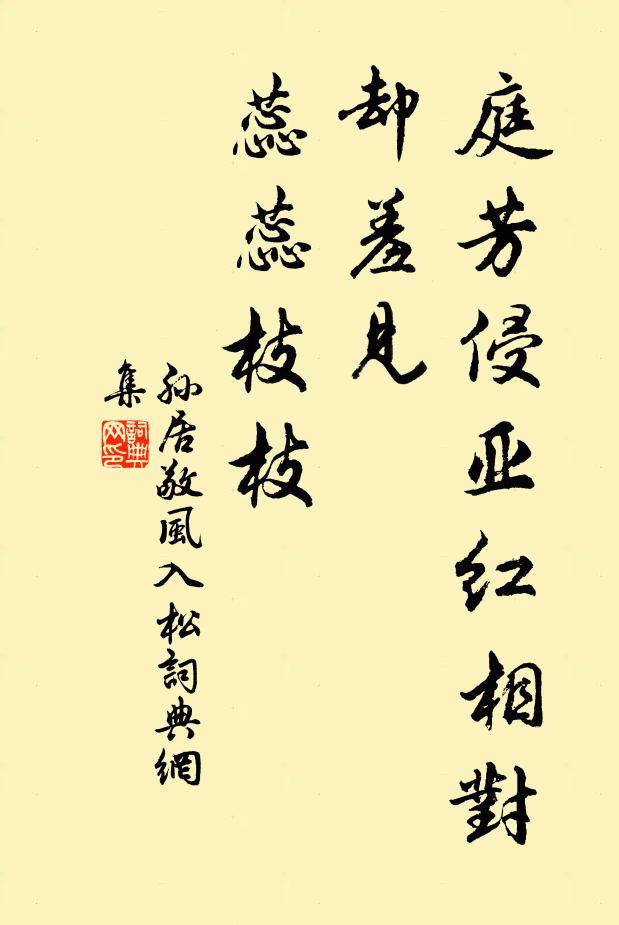 庭芳侵亚红相對
却羞見
蕊蕊枝枝
孙居敬風入松詞典網
集
詞典
网印